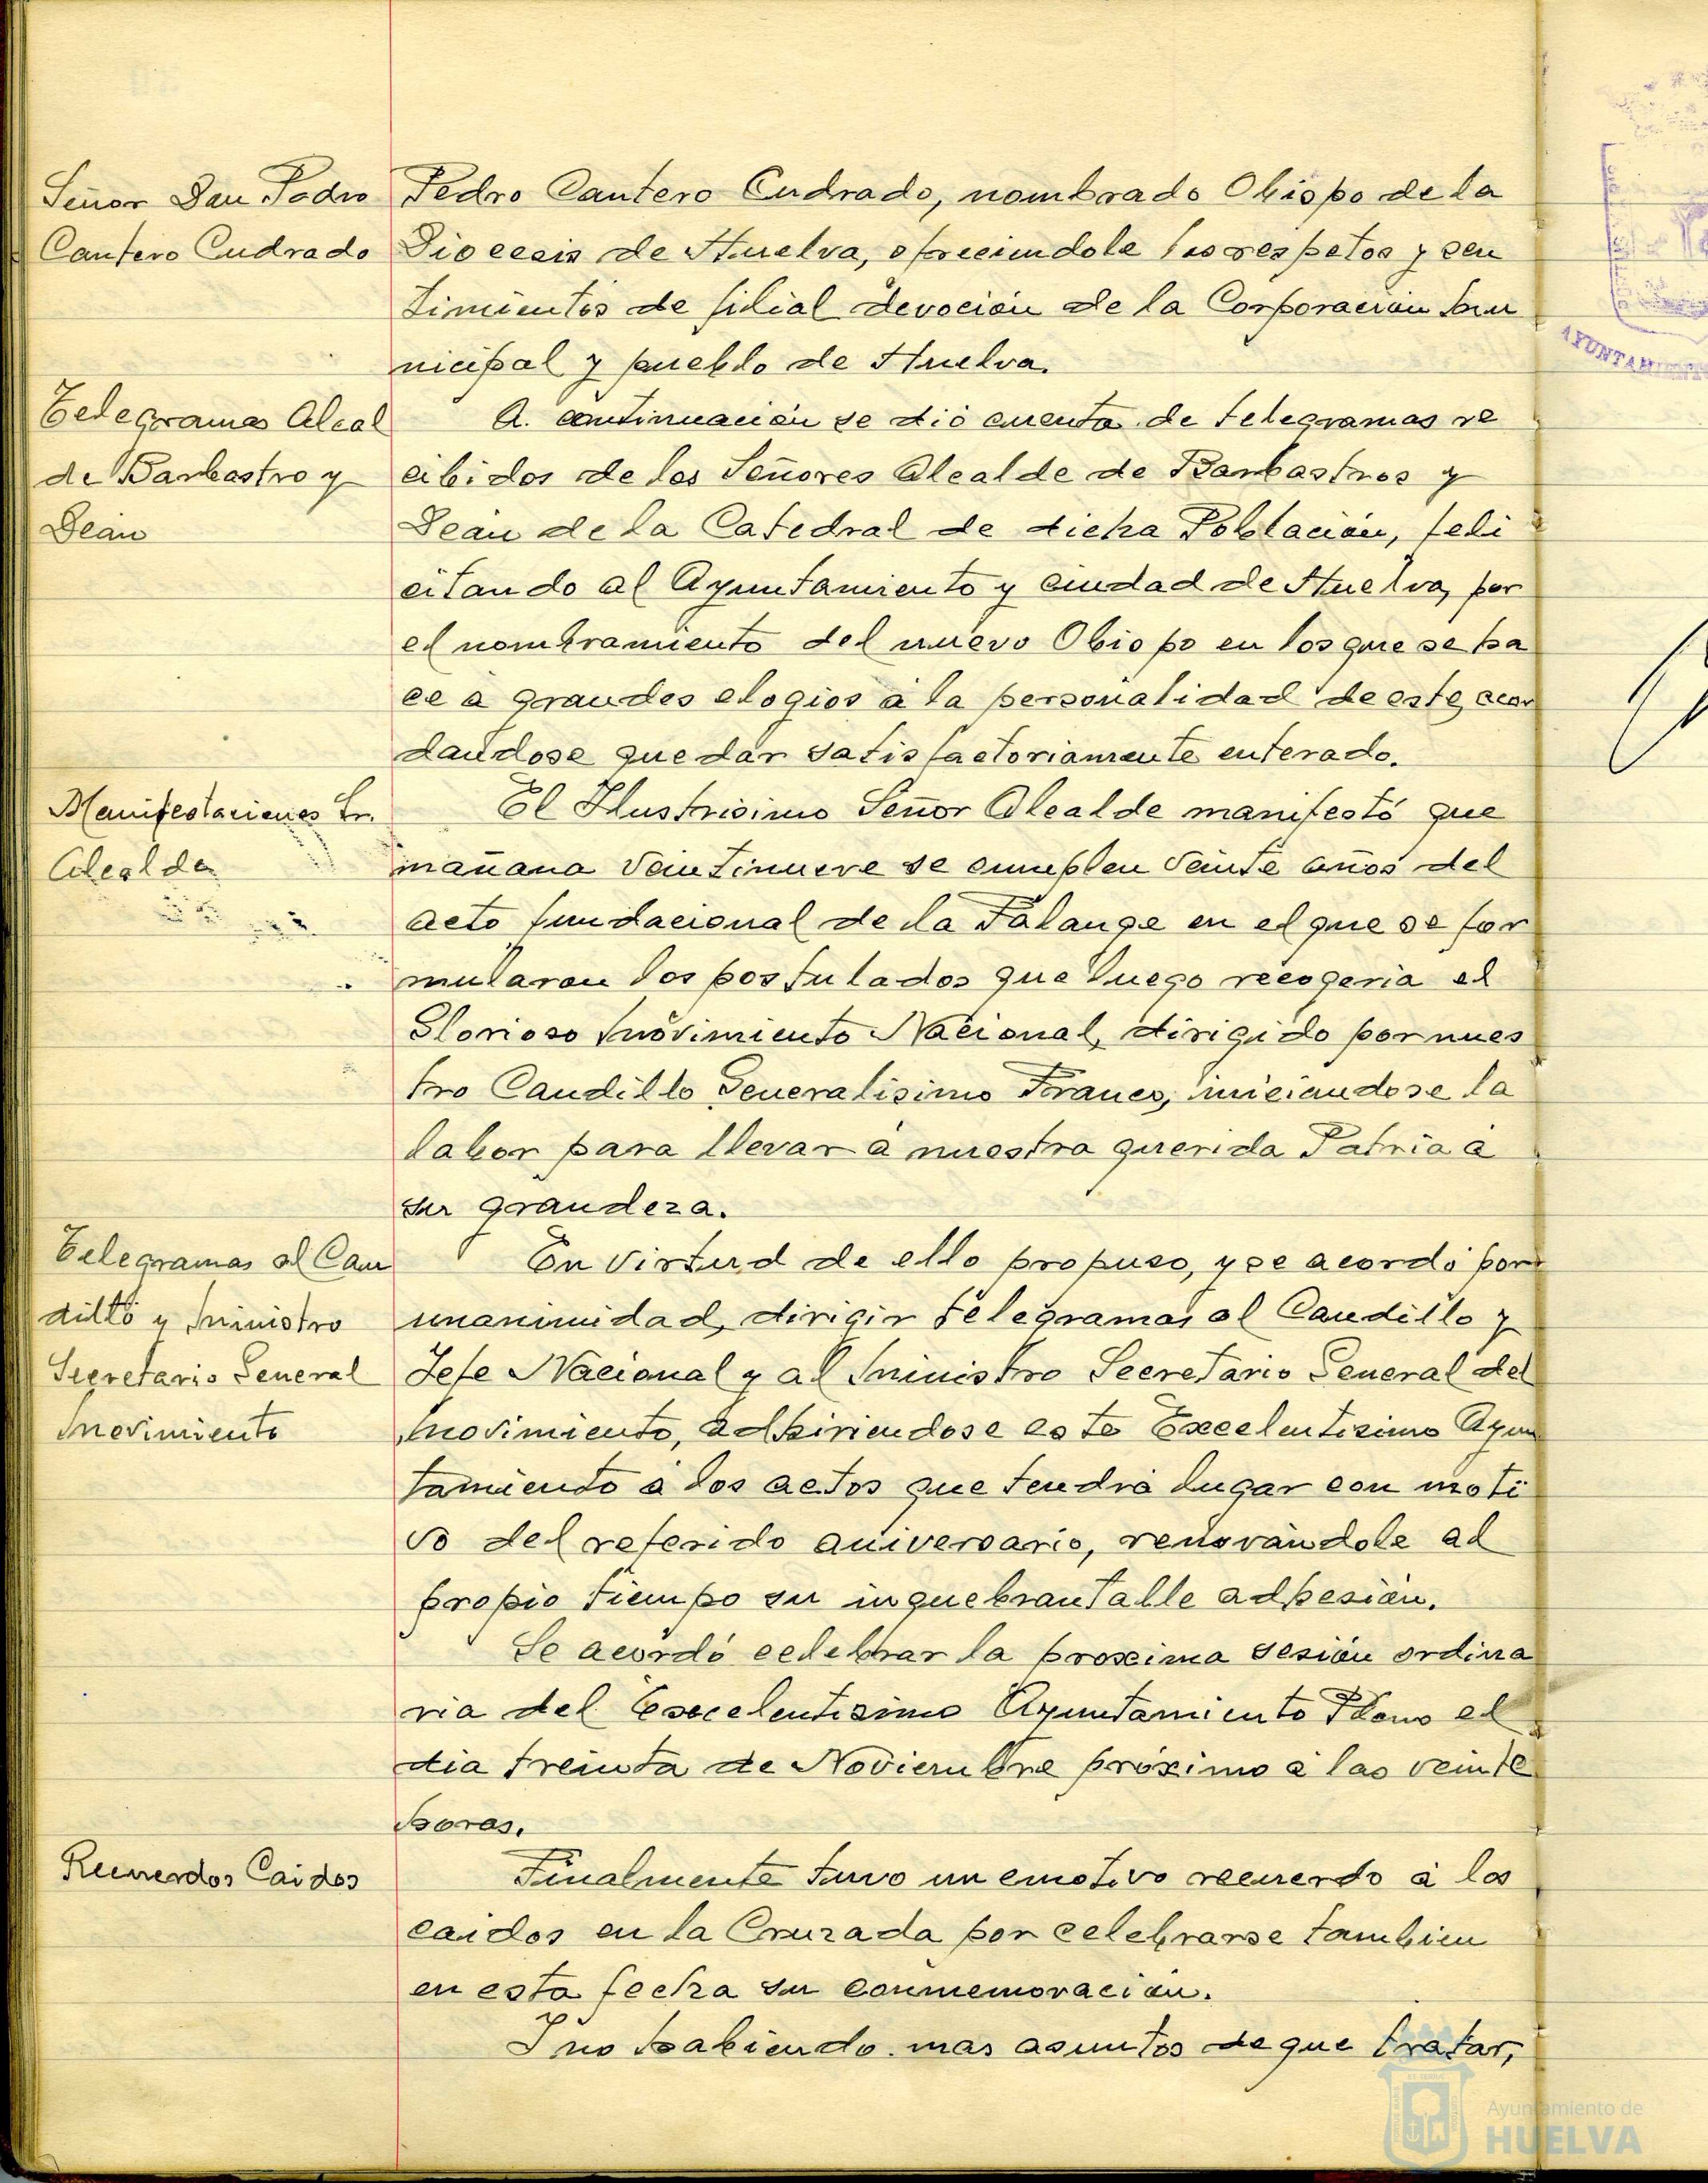 Señor Don Pedro
Cantero Cudrado
Pedro Cantero Cudrado, nombrado Obispo de la
Diocesis de Huelva, ofreciendole los respetos y sen
timientos de filial devoción de la Corporación Mu
nicipal y pueblo de Huelva.
Telegramas Alcal
de Barbastro y
Dean
A continuación se dió cuenta de telegramas re
cibidos de los Señores Alcalde de Barbastros y
Dean de la Catedral de dicha Población, feli
citando al Ayuntamiento y ciudad de Huelva, por
el nombramiento del nuevo Obispo en los que se ha
ce a grandes elogios a la personalidad de este, acor
dandose quedar satisfactoriamente enterado.
Manifestaciones Sr.
Alcalde
El Ilustrisimo Señor Alcalde manifestó que
mañana veintinueve se cumplen veinte años del
acto fundacional de la Falange en el que se for
mularon los postulados que luego recogeria el
Glorioso Movimiento Nacional, dirigido por nues
tro Caudillo Generalisimo Franco, iniciandose la
labor para llevar a nuestra querida Patria a
su grandeza.
Telegramas al Cau
dillo y Ministro
Secretario General
Movimiento
En virtud de ello propuso, y se acordó por
unanimidad, dirigir telegramas al Caudillo y
Jefe Nacional y al Ministro Secretario General del
Movimiento, adhiriendose este Excelentisimo Ayun
tamiento a los actos que tendrá lugar con moti
vo del referido aniversario, renovándole al
propio tiempo su inquebrantable adhesión.
Se acordó celebrar la proxima sesión ordina
ria del Excelentisimo Ayuntamiento Pleno el
dia treinta de Noviembre próximo a las veinte
horas.
Recuerdos Caidos
Finalmente tuvo un emotivo recuerdo a los
caidos en la Cruzada por celebrarse tambien
en esta fecha su conmemoración.
I no habiendo mas asuntos de que tratar,
AYUNTAMIENT
Ayuntamiento de
HUELVA